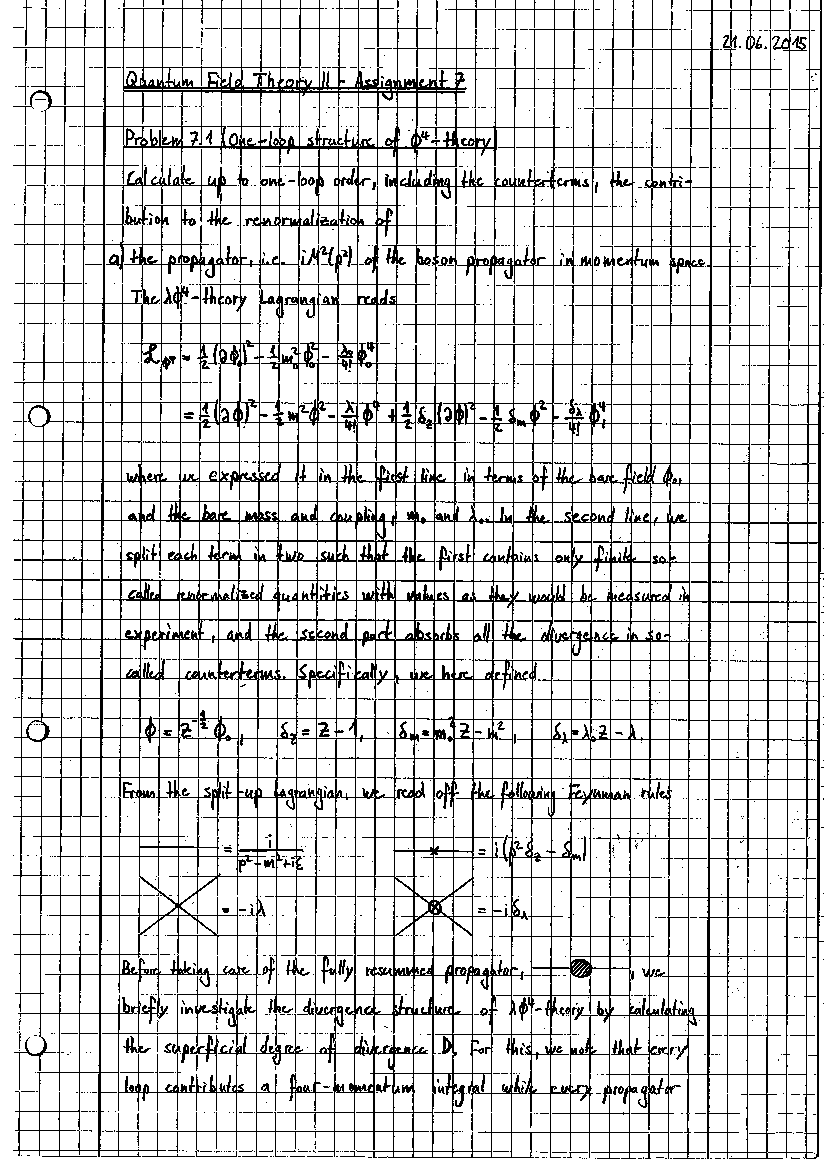 21.06.2015
Quantum Field Theory II - Assignment 7
Problem 7.1 (One-loop structure of ϕ⁴-theory)
Calculate up to one-loop order, including the counterterms, the contri-
bution to the renormalization of
a) the propagator, i.e. iM²(p²) of the boson propagator in momentum space.
The λϕ⁴-theory Lagrangian reads
ℒ_ϕ⁴ = 1/2 (∂ϕ₀)² - 1/2 m₀² ϕ₀² - λ₀/4! ϕ₀⁴
= 1/2 (∂ϕ)² - 1/2 m² ϕ² - λ/4! ϕ⁴ + 1/2 δ_z (∂ϕ)² - 1/2 δ_m ϕ² - δ_λ/4! ϕ⁴,
where we expressed it in the first line in terms of the bare field ϕ₀,
and the bare mass and coupling, m₀ and λ₀. In the second line, we
split each term in two such that the first contains only finite so-
called renormalized quantities with values as they would be measured in
experiment, and the second part absorbs all the divergence in so-
called counterterms. Specifically, we here defined
ϕ = Z^(-1/2) ϕ₀, δ_z = Z - 1, δ_m = m₀² Z - m², δ_λ = λ₀ Z - λ.
From the split-up Lagrangian, we read off the following Feynman rules
= i/(p² - m² + iε) = i(p² δ_z - δ_m)
= -iλ = -iδ_λ
Before taking care of the fully resummed propagator, , we
briefly investigate the divergence structure of λϕ⁴-theory by calculating
the superficial degree of divergence D. For this, we note that every
loop contributes a four-momentum integral while every propagator